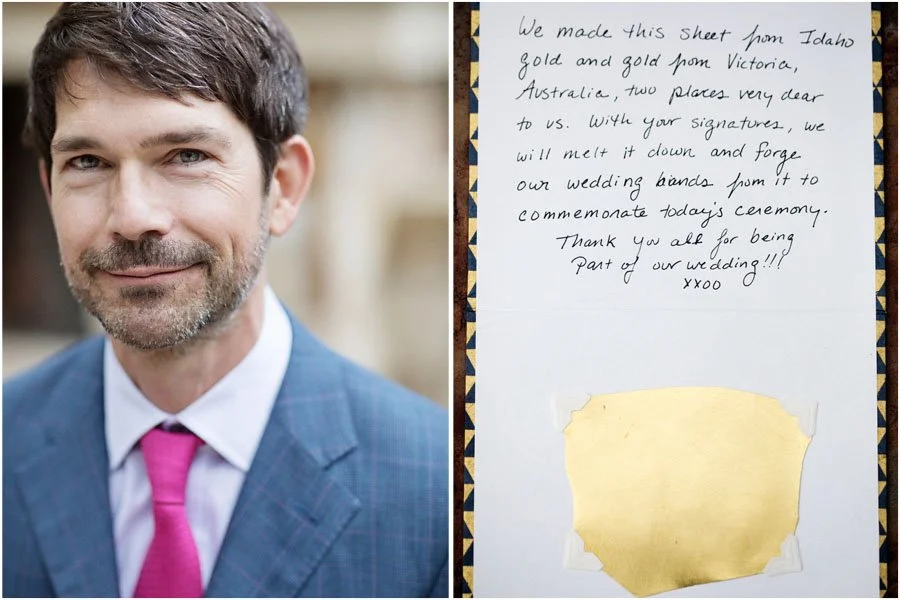 We made this sheet from Idaho
gold and gold from Victoria,
Australia, two places very dear
to us. With your signatures, we
will melt it down and forge
our wedding bands from it to
commemorate today's ceremony.
Thank you all for being
Part of our wedding!!!
xxoo